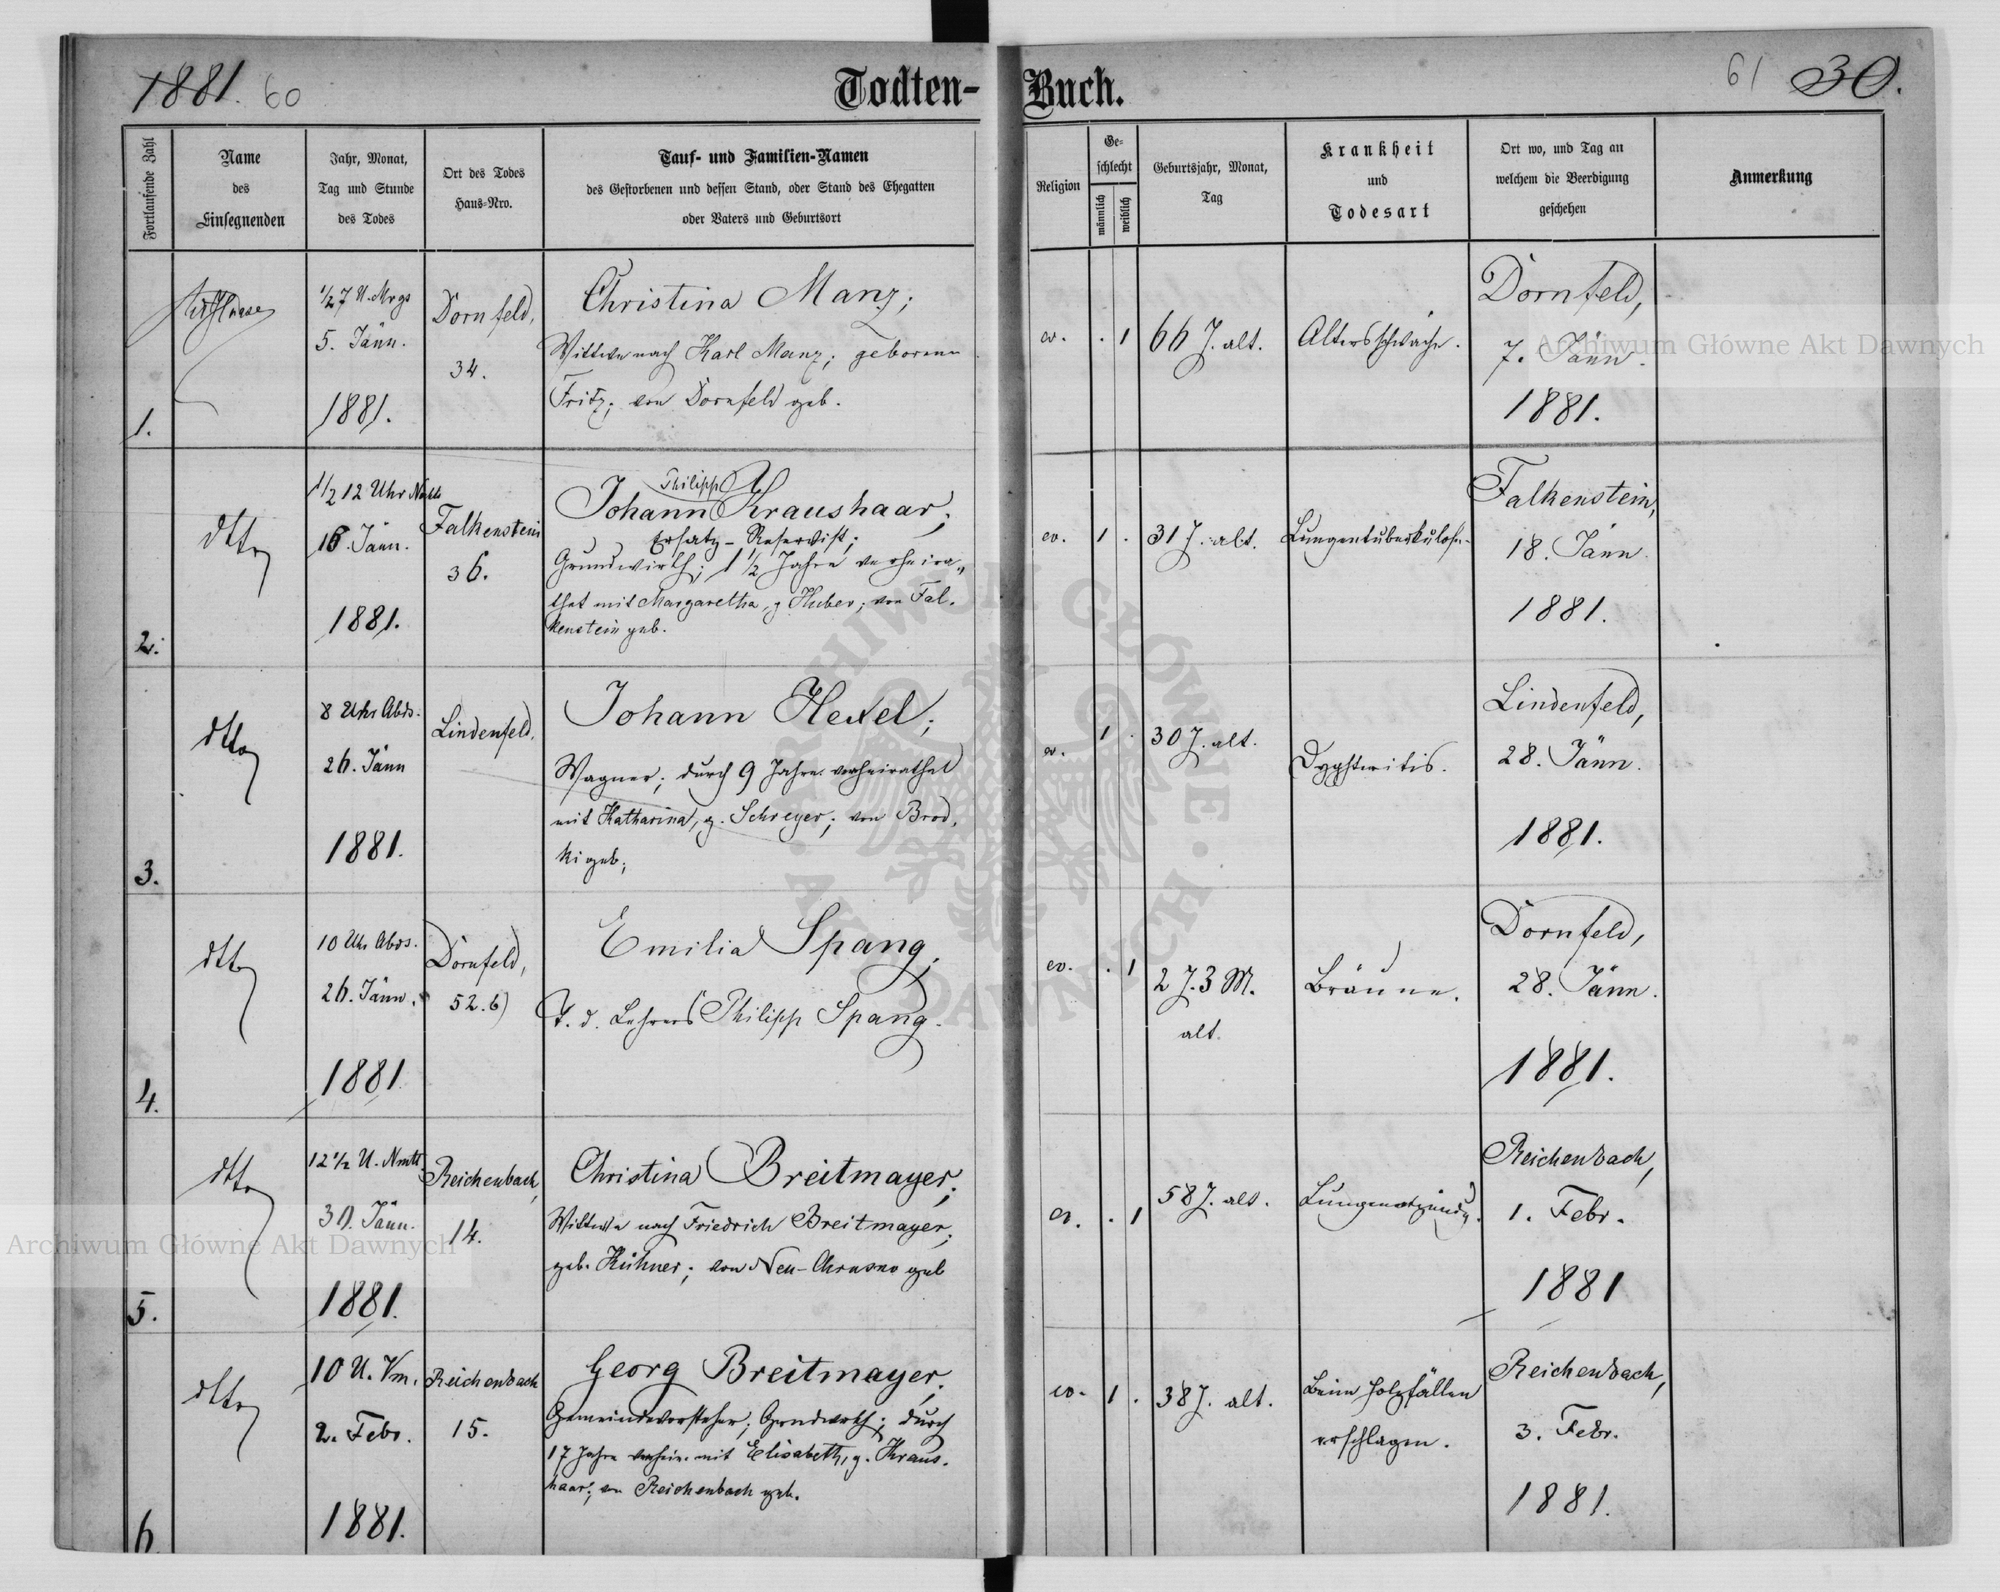 1881. 60
Todten-Buch.
61 30.
Fortlaufende Zahl
Name
des
Einsegnenden
Jahr, Monat,
Tag und Stunde
des Todes
Ort des Todes
Haus-Nro.
Tauf- und Familien-Namen
des Gestorbenen und dessen Stand, oder Stand des Ehegatten
oder Vaters und Geburtsort
Religion
Ge-
schlecht
männlich
weiblich
Geburtsjahr, Monat,
Tag
Krankheit
und
Todesart
Ort wo, und Tag an
welchem die Beerdigung
geschehen
Anmerkung
1.
1/2 7 U. Mrgs
5. Jänn.
1881.
Dornfeld,
34.
Christina Manz;
Wittwe nach Karl Manz; geborene
Fritz; von Dornfeld geb.
ev.
. 1
66 J. alt.
Altersschwäche.
Dornfeld,
7. Jänn.
1881.
2.
dtto
1/2 12 Uhr Nchts
16. Jänn.
1881.
Falkenstein
36.
Philipp
Johann Kraushaar;
Ersatz-Reservist;
Grundwirth; 1 1/2 Jahre verheira-
thet mit Margaretha, g. Huber; von Fal-
kenstein geb.
ev.
1 .
31 J. alt.
Lungentuberkulose.
Falkenstein,
18. Jänn.
1881.
3.
dtto
8 Uhr Abds.
26. Jänn
1881.
Lindenfeld,
Johann Hexel;
Wagner; durch 9 Jahre verheirathet
mit Katharina, g. Schreyer; von Brod-
ki geb;
ev.
1 .
30 J. alt.
Dyphteritis.
Lindenfeld,
28. Jänn.
1881.
4.
dtto
10 Uhr Abds.
26. Jänn.
1881.
Dornfeld,
52. b)
Emilia Spang;
T. d. Lehrers Philipp Spang.
ev.
. 1
2 J. 3 M.
alt.
Bräune.
Dornfeld,
28. Jänn.
1881.
5.
dtto
12 1/2 U. Nmtt.
30. Jänn.
1881.
Reichenbach,
14.
Christina Breitmayer;
Wittwe nach Friedrich Breitmayer;
geb. Kühner; von Neu-Chrusno geb
ev.
. 1
58 J. alt.
Lungenentzündg.
Reichenbach,
1. Febr.
1881
6.
dtto
10 U. Vm.
2. Febr.
1881.
Reichenbach
15.
Georg Breitmayer;
Gemeindevorsteher; Grundwirth; durch
17 Jahre verheir. mit Elisabeth, g. Kraus-
haar; von Reichenbach geb.
ev.
1 .
38 J. alt.
Beim Holzfällen
erschlagen.
Reichenbach,
3. Febr.
1881.
Archiwum Główne Akt Dawnych
Archiwum Główne Akt Dawnych
ARCHIWUM GŁÓWNE AKT DAWNYCH